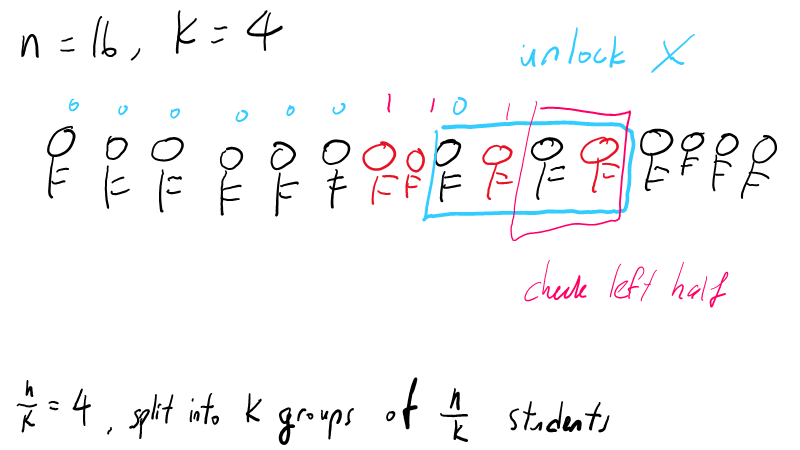 n = 16, K = 4
unlock X
0 0 0 0 0 0 1 1 0 1
check left half
n/K = 4, split into K groups of n/K students